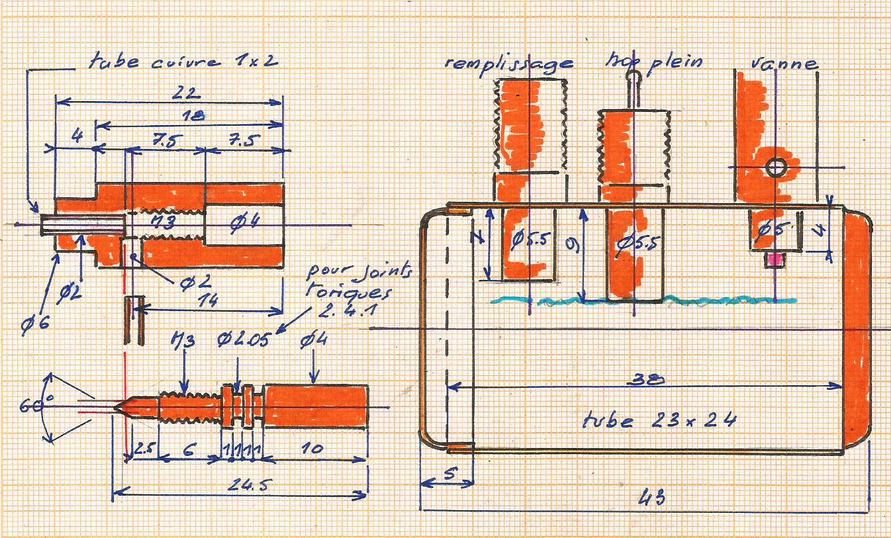 tube cuivre 1x2
22
18
4
7.5
7.5
M3
Ø4
Ø2
Ø2
14
Ø6
pour joints
toriques
2.4.1
M3
Ø2.05
Ø4
60°
2.5
6
1
1
1
1
10
24.5
remplissage
trop plein
vanne
7
Ø5.5
9
Ø5.5
Ø5
4
38
tube 23 x 24
5
43